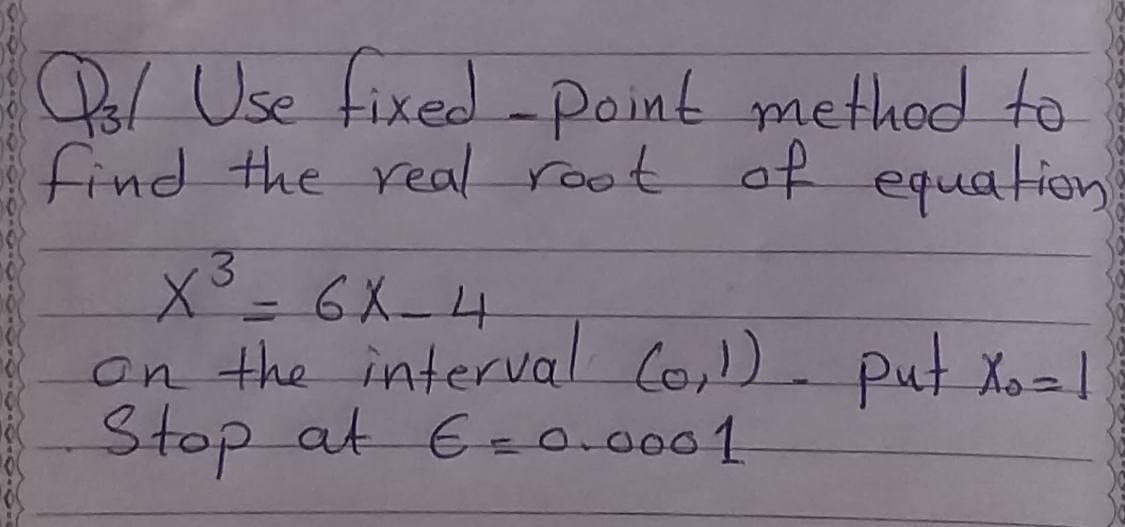 Q3/ Use fixed-point method to
find the real root of equation
x³ = 6x-4
on the interval (0,1). put x₀=1
Stop at ϵ=0.0001